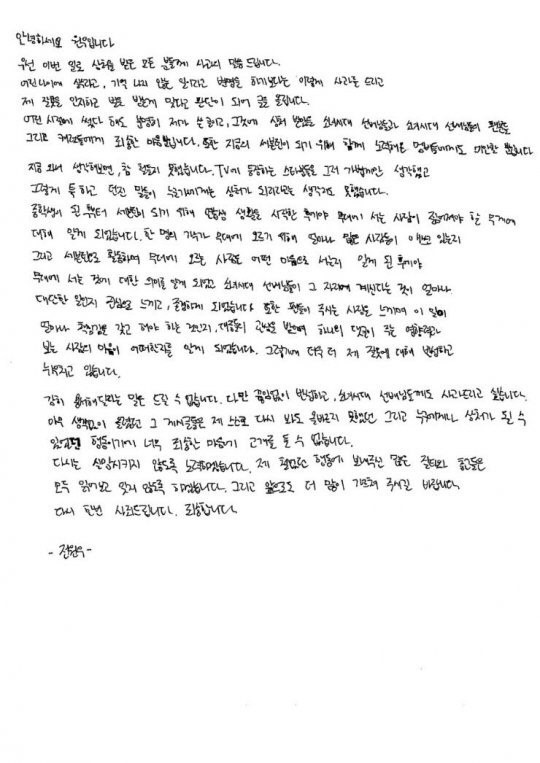 안녕하세요 원우입니다
우선 이번 일로 상처를 받은 모든 분들께 사과의 말씀 드립니다.
어린 나이에 생각하고, 기억 나지 않는 일이라고 변명을 하기보다는 이렇게 사과를 드리고
제 잘못을 인지하고 벌도 받는게 맞다고 판단이 되어 글을 올립니다.
어린 시절에 썼다 해도 분명히 제가 쓴 글이고, 그것에 상처 받았을 소녀시대 선배님들과 소녀시대 선배님들의 팬분들
그리고 캐럿들에게 죄송한 마음뿐입니다. 또한 지금의 세븐틴이 되기 위해 함께 노력해온 멤버들에게도 미안할 뿐입니다
지금 와서 생각해보면, 참 철들지 못했습니다. TV에 등장하는 스타분들을 그저 가볍게만 생각했고
그렇게 툭 하고 던진 말들이 누군가에게는 상처가 되리라고는 생각지도 못했습니다.
중학생이 된 후부터 세븐틴이 되기 위해 연습생 생활을 시작한 후에야 무대에 서는 사람이 짊어져야 할 무게에
대해 알게 되었습니다. 한 명의 가수가 무대에 오르기 위해 얼마나 많은 사람들이 애쓰고 있는지
그리고 세븐틴으로 활동하며 무대에 오르는 사람은 어떤 마음으로 서는지 알게 된 후에야
무대에 서는 것에 대한 의미를 알게 되었고 소녀시대 선배님들이 그 자리에 계신다는 것이 얼마나
대단한 일인지 관심으로 느끼고, 존경하게 되었습니다 또한 팬들이 주시는 사랑을 느끼며 이 일이
얼마나 책임감을 갖고 해야 하는 것인지, 대중들의 관심을 받으며 하나의 댓글이 주는 영향력과
보는 사람의 마음이 어떠한지를 알게 되었습니다. 그렇기에 더욱 더 제 잘못에 대해 반성하고
뉘우치고 있습니다.
감히 용서해달라는 말은 드릴 수 없습니다. 다만 끊임없이 반성하고, 소녀시대 선배님들께도 사과드리고 싶습니다.
아무 생각없이 올렸던 그 게시글들은 제 스스로 다시 봐도 올바르지 못했던 그리고 누군가에게 상처가 될 수
있었던 행동이기에 너무 죄송한 마음에 고개를 들 수 없습니다.
다시는 실망시키지 않도록 노력하겠습니다. 제 철없던 행동에 보내주신 많은 질타와 충고들은
모두 읽어보고 잊지 않도록 하겠습니다. 그리고 앞으로도 더 많이 가르쳐 주시길 바랍니다.
다시 한번 사죄드립니다. 죄송합니다.
- 전원우 -